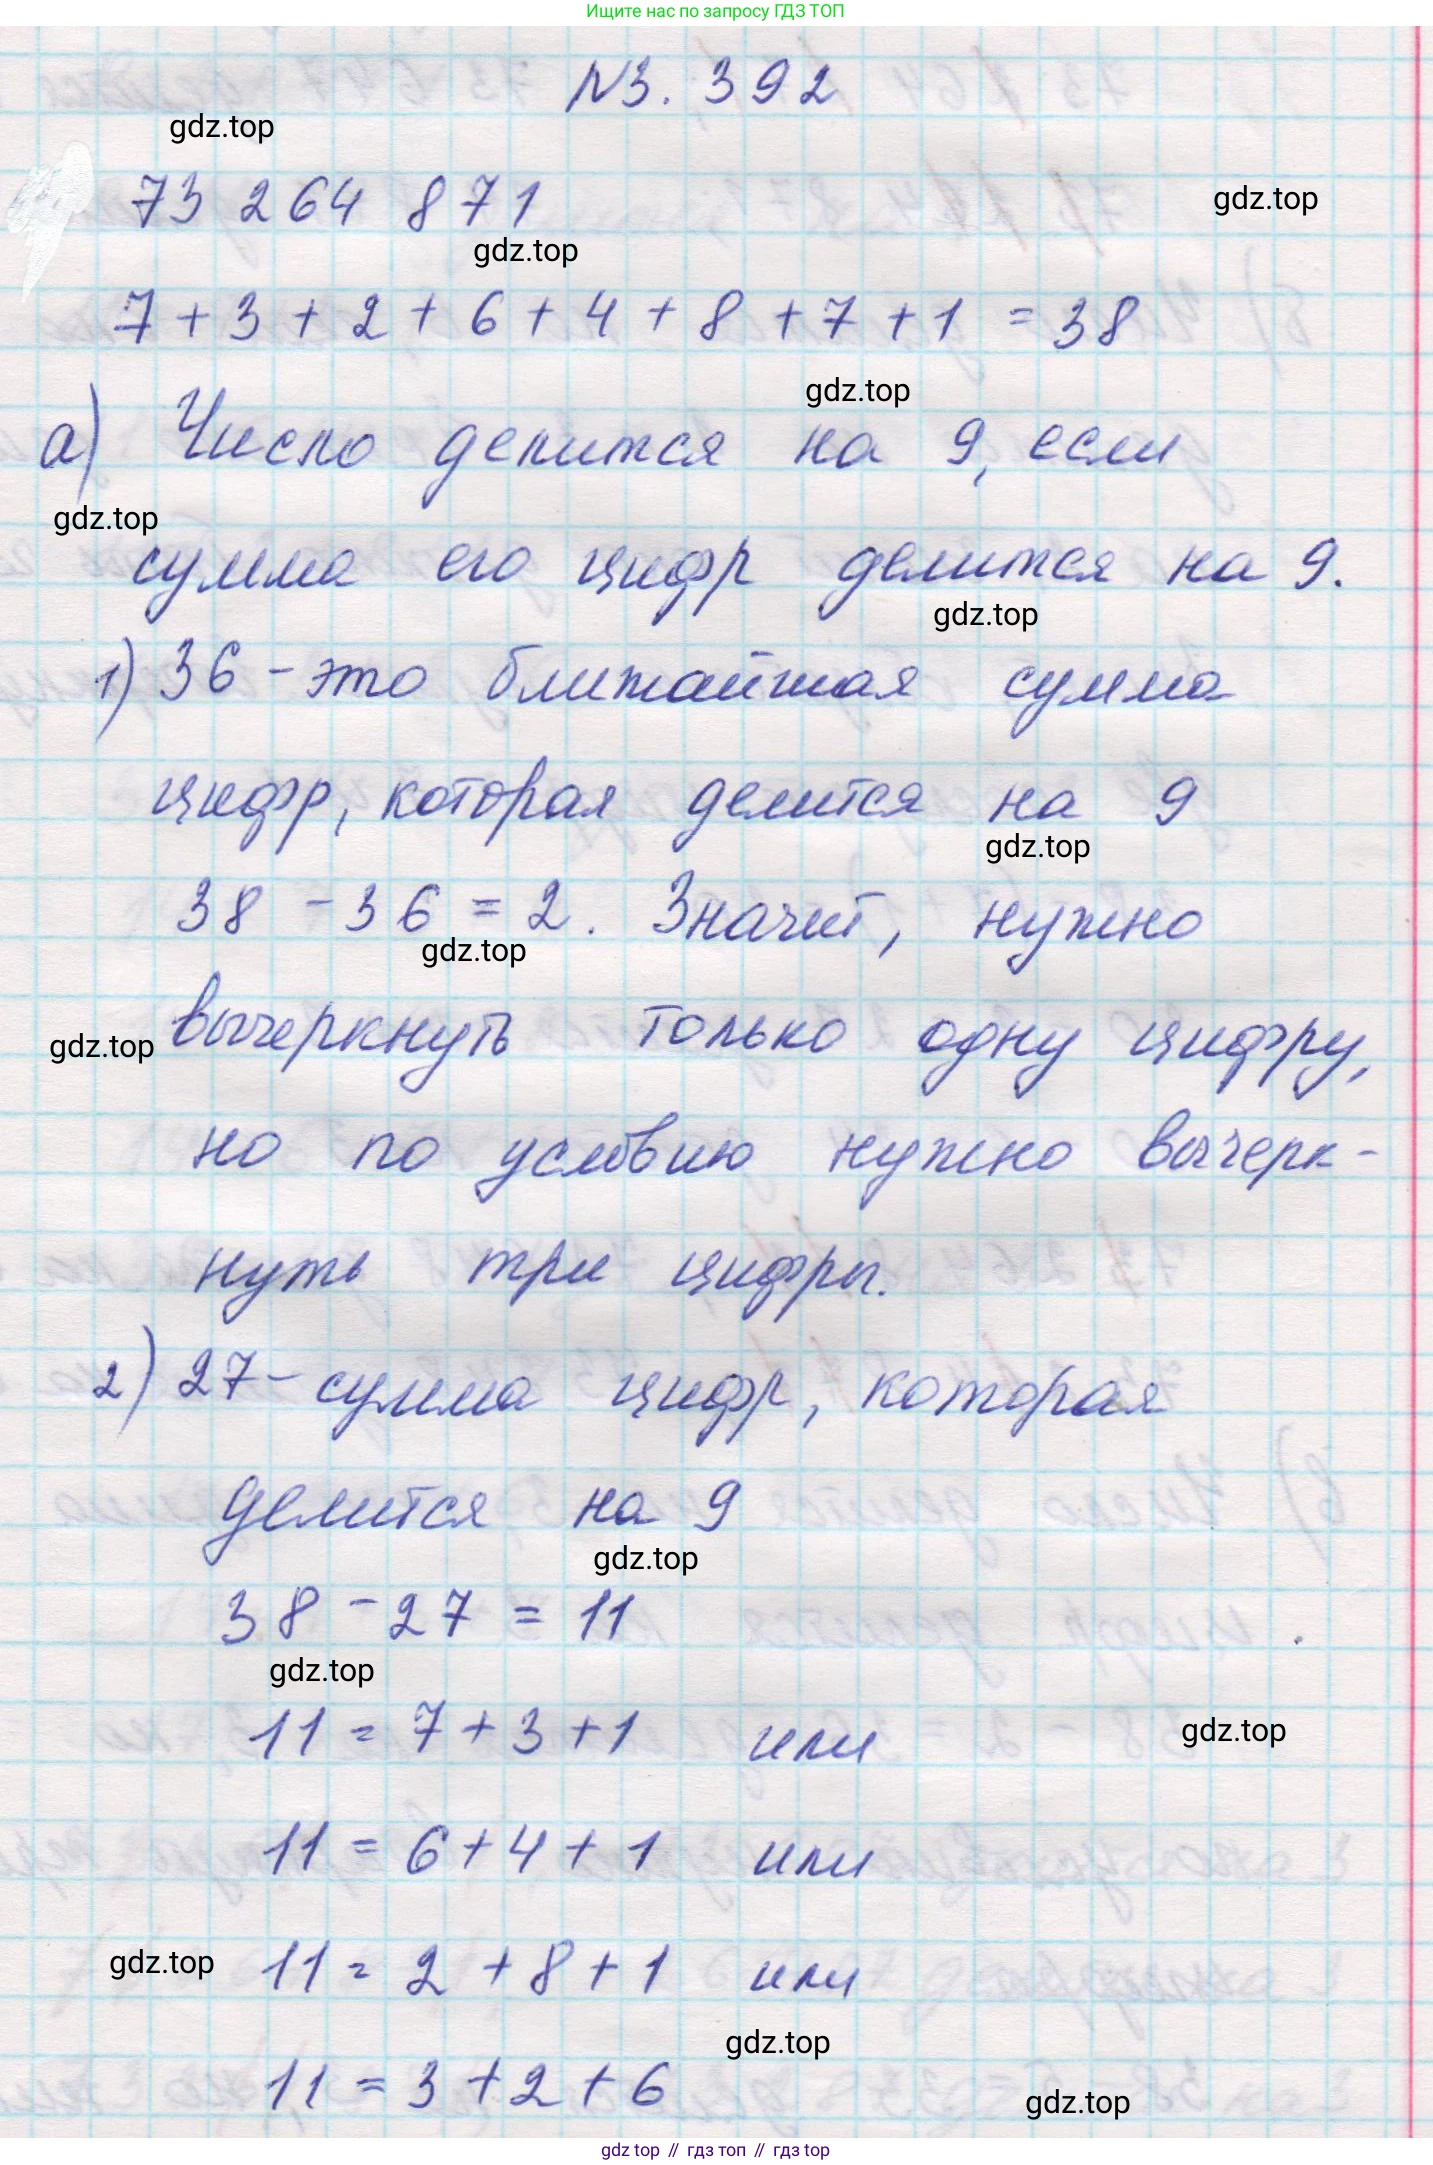 Ищите нас по запросу ГДЗ ТОП
N3. 392
gdz.top
73 264 871
gdz.top
gdz.top
7 + 3 + 2 + 6 + 4 + 8 + 7 + 1 = 38
gdz.top
а) Число делится на 9, если
gdz.top
сумма его цифр делится на 9.
gdz.top
1) 36 - это ближайшая сумма
цифр, которая делится на 9
gdz.top
38 - 36 = 2. Значит, нужно
gdz.top
вычеркнуть только одну цифру,
gdz.top
но по условию нужно вычерк-
нуть три цифры.
2) 27 - сумма цифр, которая
делится на 9
gdz.top
38 - 27 = 11
gdz.top
11 = 7 + 3 + 1 или
gdz.top
11 = 6 + 4 + 1 или
gdz.top
11 = 2 + 8 + 1 или
gdz.top
11 = 3 + 2 + 6
gdz.top
gdz top // гдз топ // gdz.top